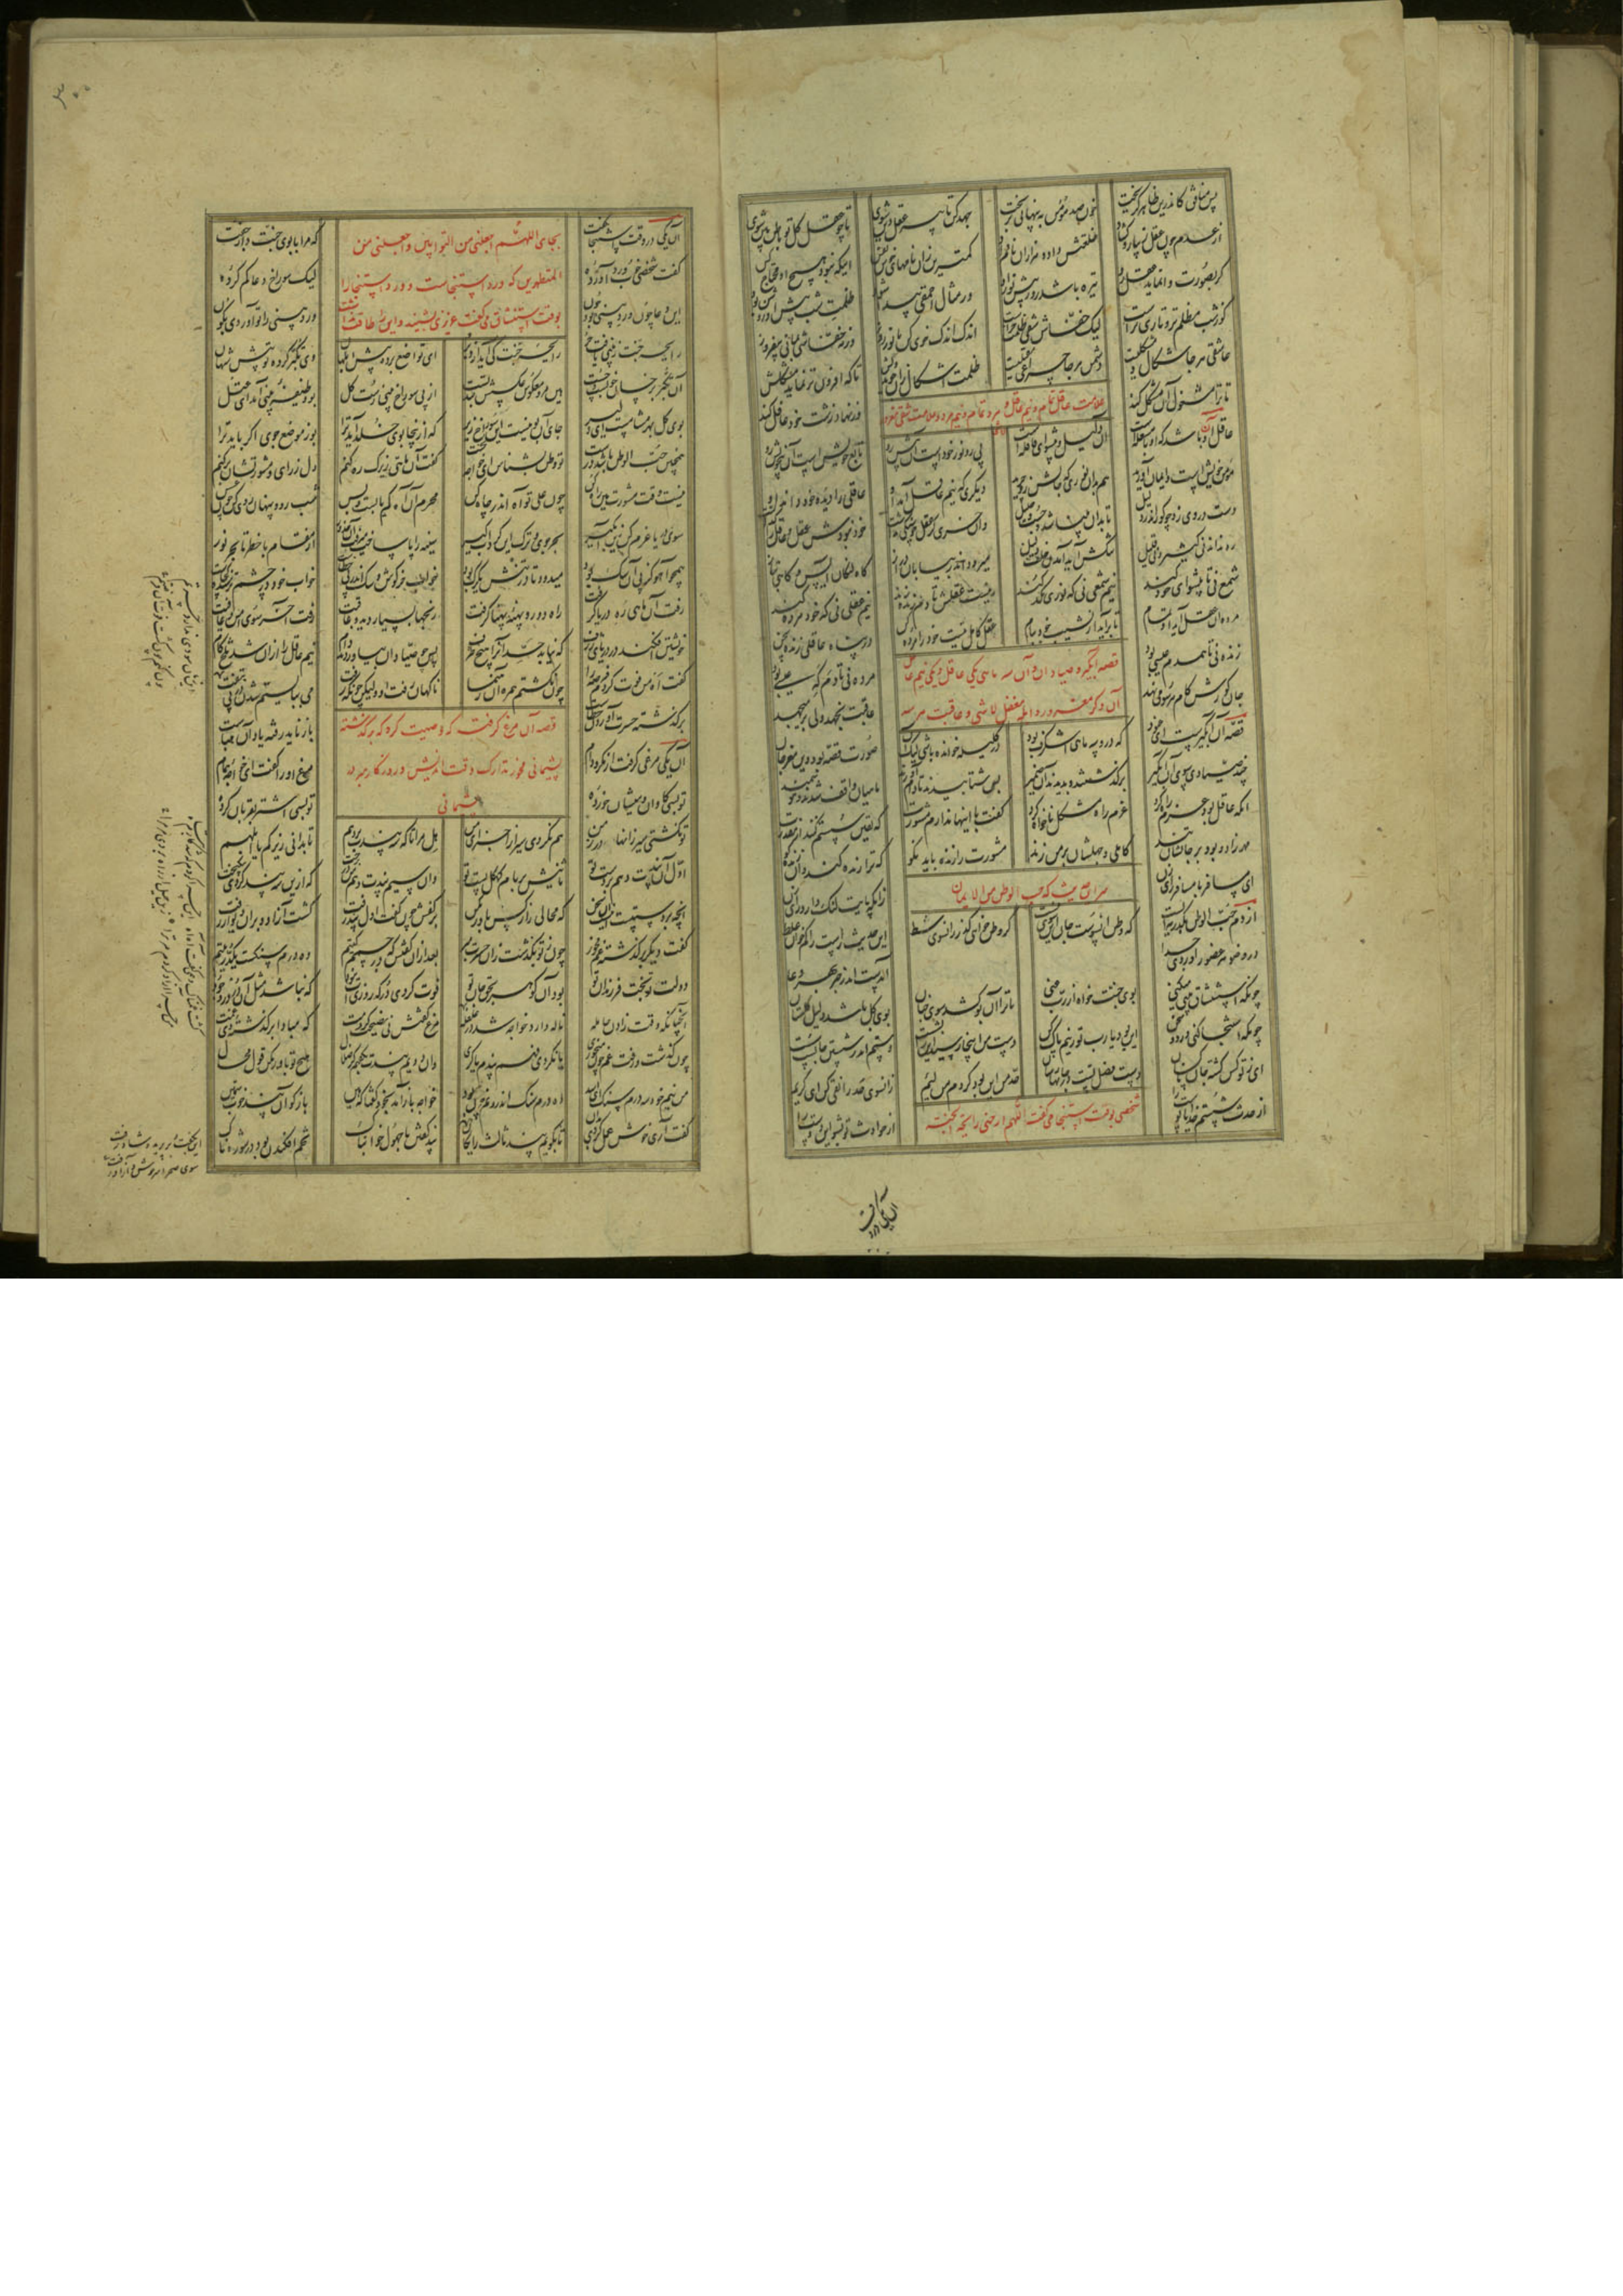 پس منافق کاندرین ظاهر گریخت خون صد مؤمن به پنهانی بریخت جهد کن تا پیر عقل و دین شوی تا چو عقل کل تو باطن بین شوی
از عدم چون عقل زیبا رو گشاد خلعتش داد و هزاران نام داد کمترین زان نامهای خوش نفس اینکه نبود هیچ او محتاج کس
گر بصورت وا نماید عقل رو تیره باشد روز پیش نور او ور مثال احمقی پیدا شود ظلمت شب پیش او روشن بود
کو ز شب مظلم تر و تاری ترست لیک خفاش شقی ظلمت خرست اندک اندک خوی کن با نور روز ورنه خفاشی بمانی بی فروز
عاشق هر جا شکال و مشکلیست دشمن هر جا چراغ مقبلیست ظلمت اشکال زان جوید دلش تا که افزون تر نماید مشکلش
تا ترا مشغول آن مشکل کند وز نهاد زشت خود غافل کند
علامت عاقل تمام و نیم عاقل و مرد تمام و نیم مرد و علامت شقی مغرور
عاقل آن باشد که او با مشعله است آن دلیل و پیشوای قافله است پی رو نور خودست آن پیش رو تابع خویش است آن بی خویش رو
مؤمن خویش است و ایمان آورید هم بدان نوری که جانش زو چرید دیگری که نیم عاقل آمد او عاقلی را دیده خود داند او
دست در وی زد چو کور اندر دلیل تا بدان بینا شد و چست و جلیل وان خری کز عقل جو سنگی نداشت خود نبودش عقل و عاقل را گذاشت
ره نداند نی کثیر و نی قلیل ننگش آید آمدن خلف دلیل میرود اندر بیابان دراز گاه لنگان آیس و گاهی بتاز
شمع نی تا پیشوای خود کند نیم شمعی نی که نوری کد کند نیست عقلش تا دم زنده زند نیم عقلی نی که خود مرده کند
مرده آن عاقل آید او تمام تا برآید از نشیب خود ببام عقل کامل نیست خود را مرده کن در پناه عاقلی زنده سخن
زنده نی تا همدم عیسی بود مرده نی تا دمگه عیسی بود
جان کورش گام هر سو می نهد عاقبت نجهد ولی بر می جهد
قصه آبگیر و صیادان و آن سه ماهی یکی عاقل و یکی نیم عاقل
آن دگر مغرور و ابله مغفل لاشی و عاقبت هر سه
قصه آن آبگیرست ای عنود که درو سه ماهی اشگرف بود در کلیله خوانده باشی لیک آن صورت قصه بود وین مغز جان
چند صیادی سوی آن آبگیر برگذشتند و بدیدند آن ضمیر پس شتابیدند تا دام آورند ماهیان واقف شدند و هوشمند
آنکه عاقل بود عزم راه کرد عزم راه مشکل ناخواه کرد گفت با اینها ندارم مشورت که یقین سستم کنند از مقدرت
مهر زاد و بود بر جانشان تند کاهلی و جهلشان بر من زند مشورت را زنده باید نکو که ترا زنده کند وان زنده کو
ای مسافر با مسافر رای زن زانکه پایت لنگ دارد رای زن
سر این حدیث که حب الوطن من الایمان
از دم حب الوطن بگذر مایست که وطن آنسوست جان این سوی نیست گر وطن خواهی گذر زانسوی شط این حدیث راست را کم خوان غلط
در وضو هر عضو را وردی جدا آمدست اندر خبر بهر دعا
چونکه استنشاق بینی میکنی بوی جنت خواه از رب غنی تا ترا آن بو کشد سوی جنان بوی گل باشد دلیل گلستان
چونکه استنجا کنی ورد و سخن این بود یا رب تو زینم پاک کن دست من اینجا رسید اینرا بشست دستم اندر شستن جانست سست
ای ز تو کس گشته جان ناکسان دست فضل تست در جانها رسان حد من این بود کردم من لئیم زانسوی حد را نقی کن ای کریم
از حدث شستم خدایا پوست را از حوادث تو بشو این دوست را
شخصی بوقت استنجا می گفت اللهم ارحنی رایحة الجنة
آن یکی در وقت
۳۰۰
آن یکی در وقت استنجا بگفت که مرا با بوی جنت دار جفت
بجای اللهم اجعلنی من التوابین و اجعلنی من
المتطهرین که ورد استنجاست و ورد استنجا را
بوقت استنشاق می گفت عزیزی بشنید و این را طاقت نداشت
گفت شخصی خوب ورد آورده لیک سوراخ دعا گم کرده
این دعا چون ورد بینی بود چون ورد بینی را تو آوردی بکون
رایحه جنت ز بینی یافت حر رایحه جنت کی آید از دبر ای تواضع برده پیش ابلهان وی تکبر کرده تو پیش شهان
آن تکبر بر خسان خوبست و چست هین مرو معکوس عکسش بند تست از پی سوراخ بینی رست گل بو وظیفه بینی آمد ای عتل
بوی گل بهر مشامست ای دلیر جای آن بو نیست این سوراخ زیر که از اینجا بوی خلد آید ترا بو ز موضع جوی اگر باید ترا
همچنین حب الوطن باشد درست تو وطن بشناس ای خواجه نخست گفت آن ماهی زیرک ره کنم دل ز رای و مشورتشان برکنم
نیست وقت مشورت هین راه کن چون علی تو آه اندر چاه کن محرم آن آه کم یابست بس شب رو و پنهان روی کن چون عسس
سوی دریا عزم کن زین آبگیر بحر جوی و ترک این گرداب گیر سینه را پا ساخت می رفت آن حذور از مقام با خطر تا بحر نور
همچو آهو کز پی آن سگ بود میدود تا در تنش یک رگ بود خواب خرگوش و سگ اندر پی خطاست خواب خود در چشم ترسنده کجاست
رفت آن ماهی ره دریا گرفت راه دور و پهنه پهنا گرفت رنجها بسیار دید و عاقبت رفت آخر سوی امن و عافیت
خویشتن افکند در دریای ژرف که نیابد حد آنرا هیچ طرف پس چو صیادان بیاوردند دام نیم عاقل را از آن شد تلخ کام
گفت اه من فوت کردم فرصه را چون نگشتم همره آن رهنما ناگهان رفت او ولیکن چونکه رفت می ببایستم شدن در پی بتفت
بر گذشته حسرت آوردن خطاست باز ناید رفته یاد آن هباست
قصه آن مرغ گرفته که وصیت کرد که بر گذشته
پشیمانی مخور تدارک وقت اندیش و روزگار مبر در
پشیمانی
آن یکی مرغی گرفت از مکر و دام مرغ او را گفت ای خواجه همام
تو بسی گاوان و میشان خورده تو بسی اشتر بقربان کرده
تو نگشتی سیر زانها در زمن هم نگردی سیر از اجزای من هل مرا تا که سه پندت بر دهم تا بدانی زیرکم یا ابلهم
اول آن پند هم بر دست تو ثانیش بر بام کهگل بست تو وان سیم پندت دهم من بر درخت که ازین سه پند گردی نیکبخت
آنچه بر دستست اینست آن سخن که محالی را ز کس باور مکن بر کفش چون گفت اول پند زفت گشت آزاد و بر آن دیوار رفت
گفت دیگر بر گذشته غم مخور چون ز تو بگذشت زان حسرت مبر بعد از آن گفتش که در جسمم کتیم ده درم سنگست یک در یتیم
دولت تو بخت فرزندان تو بود آن گوهر بحق جان تو فوت کردی در که روزی ات نبود که نباشد مثل آن در در وجود
آنچنانکه وقت زادن حامله ناله دارد خواجه شد در غلغله مرغ گفتش نی نصیحت کردمت که مبادا بر گذشته دی غمت
چون گذشت و رفت غم چون میخوری یا نکردی فهم پندم یا کری وان دویم پندت بگفتم کز ضلال هیچ تو باور مکن قول محال
من نیم خود سه درم سنگ ای اسد ده درم سنگ اندرونم چون بود خواجه باز آمد بخود گفتا که هین باز گو آن پند خوب سیمین
گفت آری خوش عمل کردی بدان تا بگویم پند ثالث رایگان پند گفتن با جهول خوابناک تخم افکندن بود در شوره خاک